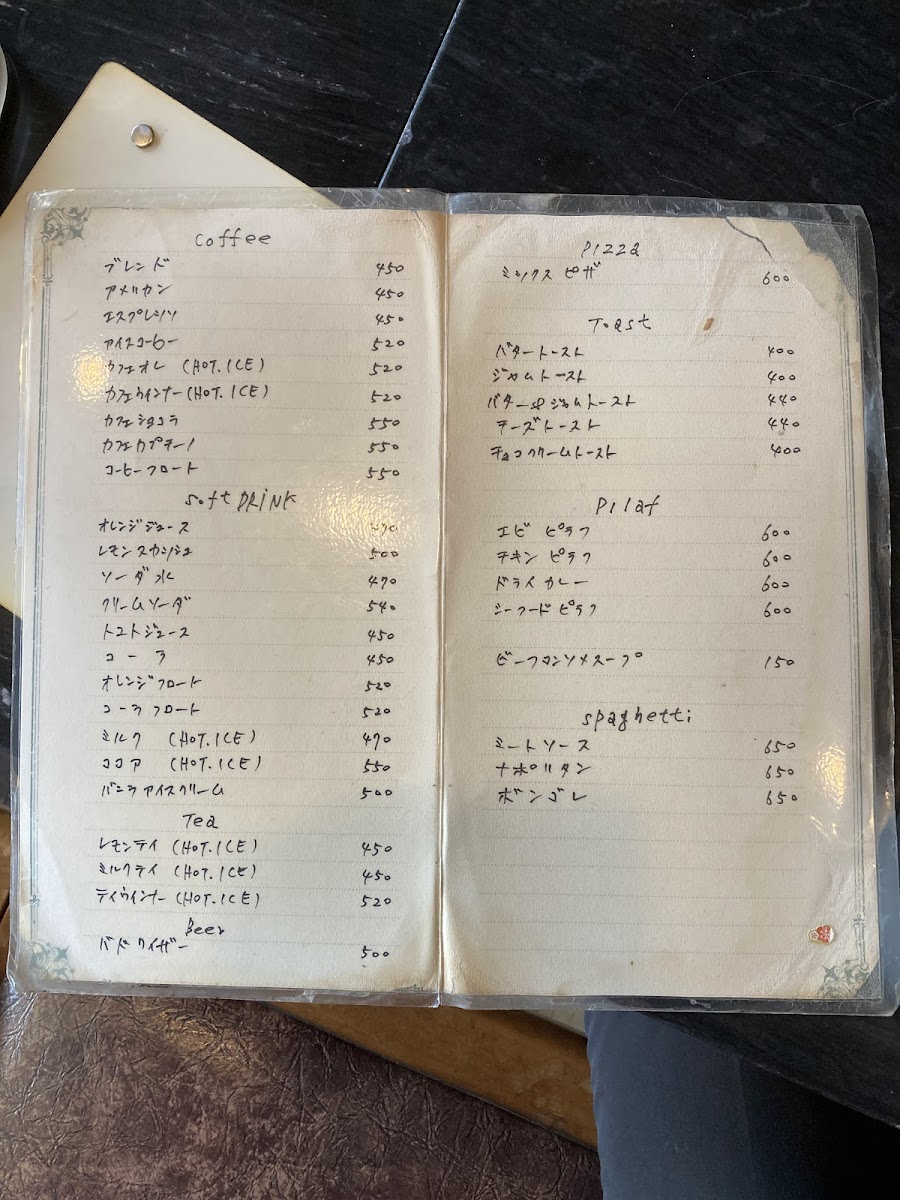 Coffee
ブレンド 450
アメリカン 450
エスプレッソ 450
アイスコーヒー 520
カフェオレ (HOT.ICE) 520
カフェウィンナー (HOT.ICE) 520
カフェショコラ 550
カフェカプチーノ 550
コーヒーフロート 550
Soft DRINK
オレンジジュース 470
レモンスカッシュ 500
ソーダ水 470
クリームソーダ 540
トマトジュース 450
コーラ 450
オレンジフロート 520
コーラフロート 520
ミルク (HOT.ICE) 470
ココア (HOT.ICE) 550
バニラアイスクリーム 500
Tea
レモンティ (HOT.ICE) 450
ミルクティ (HOT.ICE) 450
ティウィンナー (HOT.ICE) 520
Beer
バドワイザー 500
PIZZA
ミックスピザ 600
Toast
バタートースト 400
ジャムトースト 400
バター&ジャムトースト 440
チーズトースト 440
チョコクリームトースト 400
Pilaf
エビ ピラフ 600
チキン ピラフ 600
ドライカレー 600
シーフードピラフ 600
ビーフコンソメスープ 150
spaghetti
ミートソース 650
ナポリタン 650
ボンゴレ 650